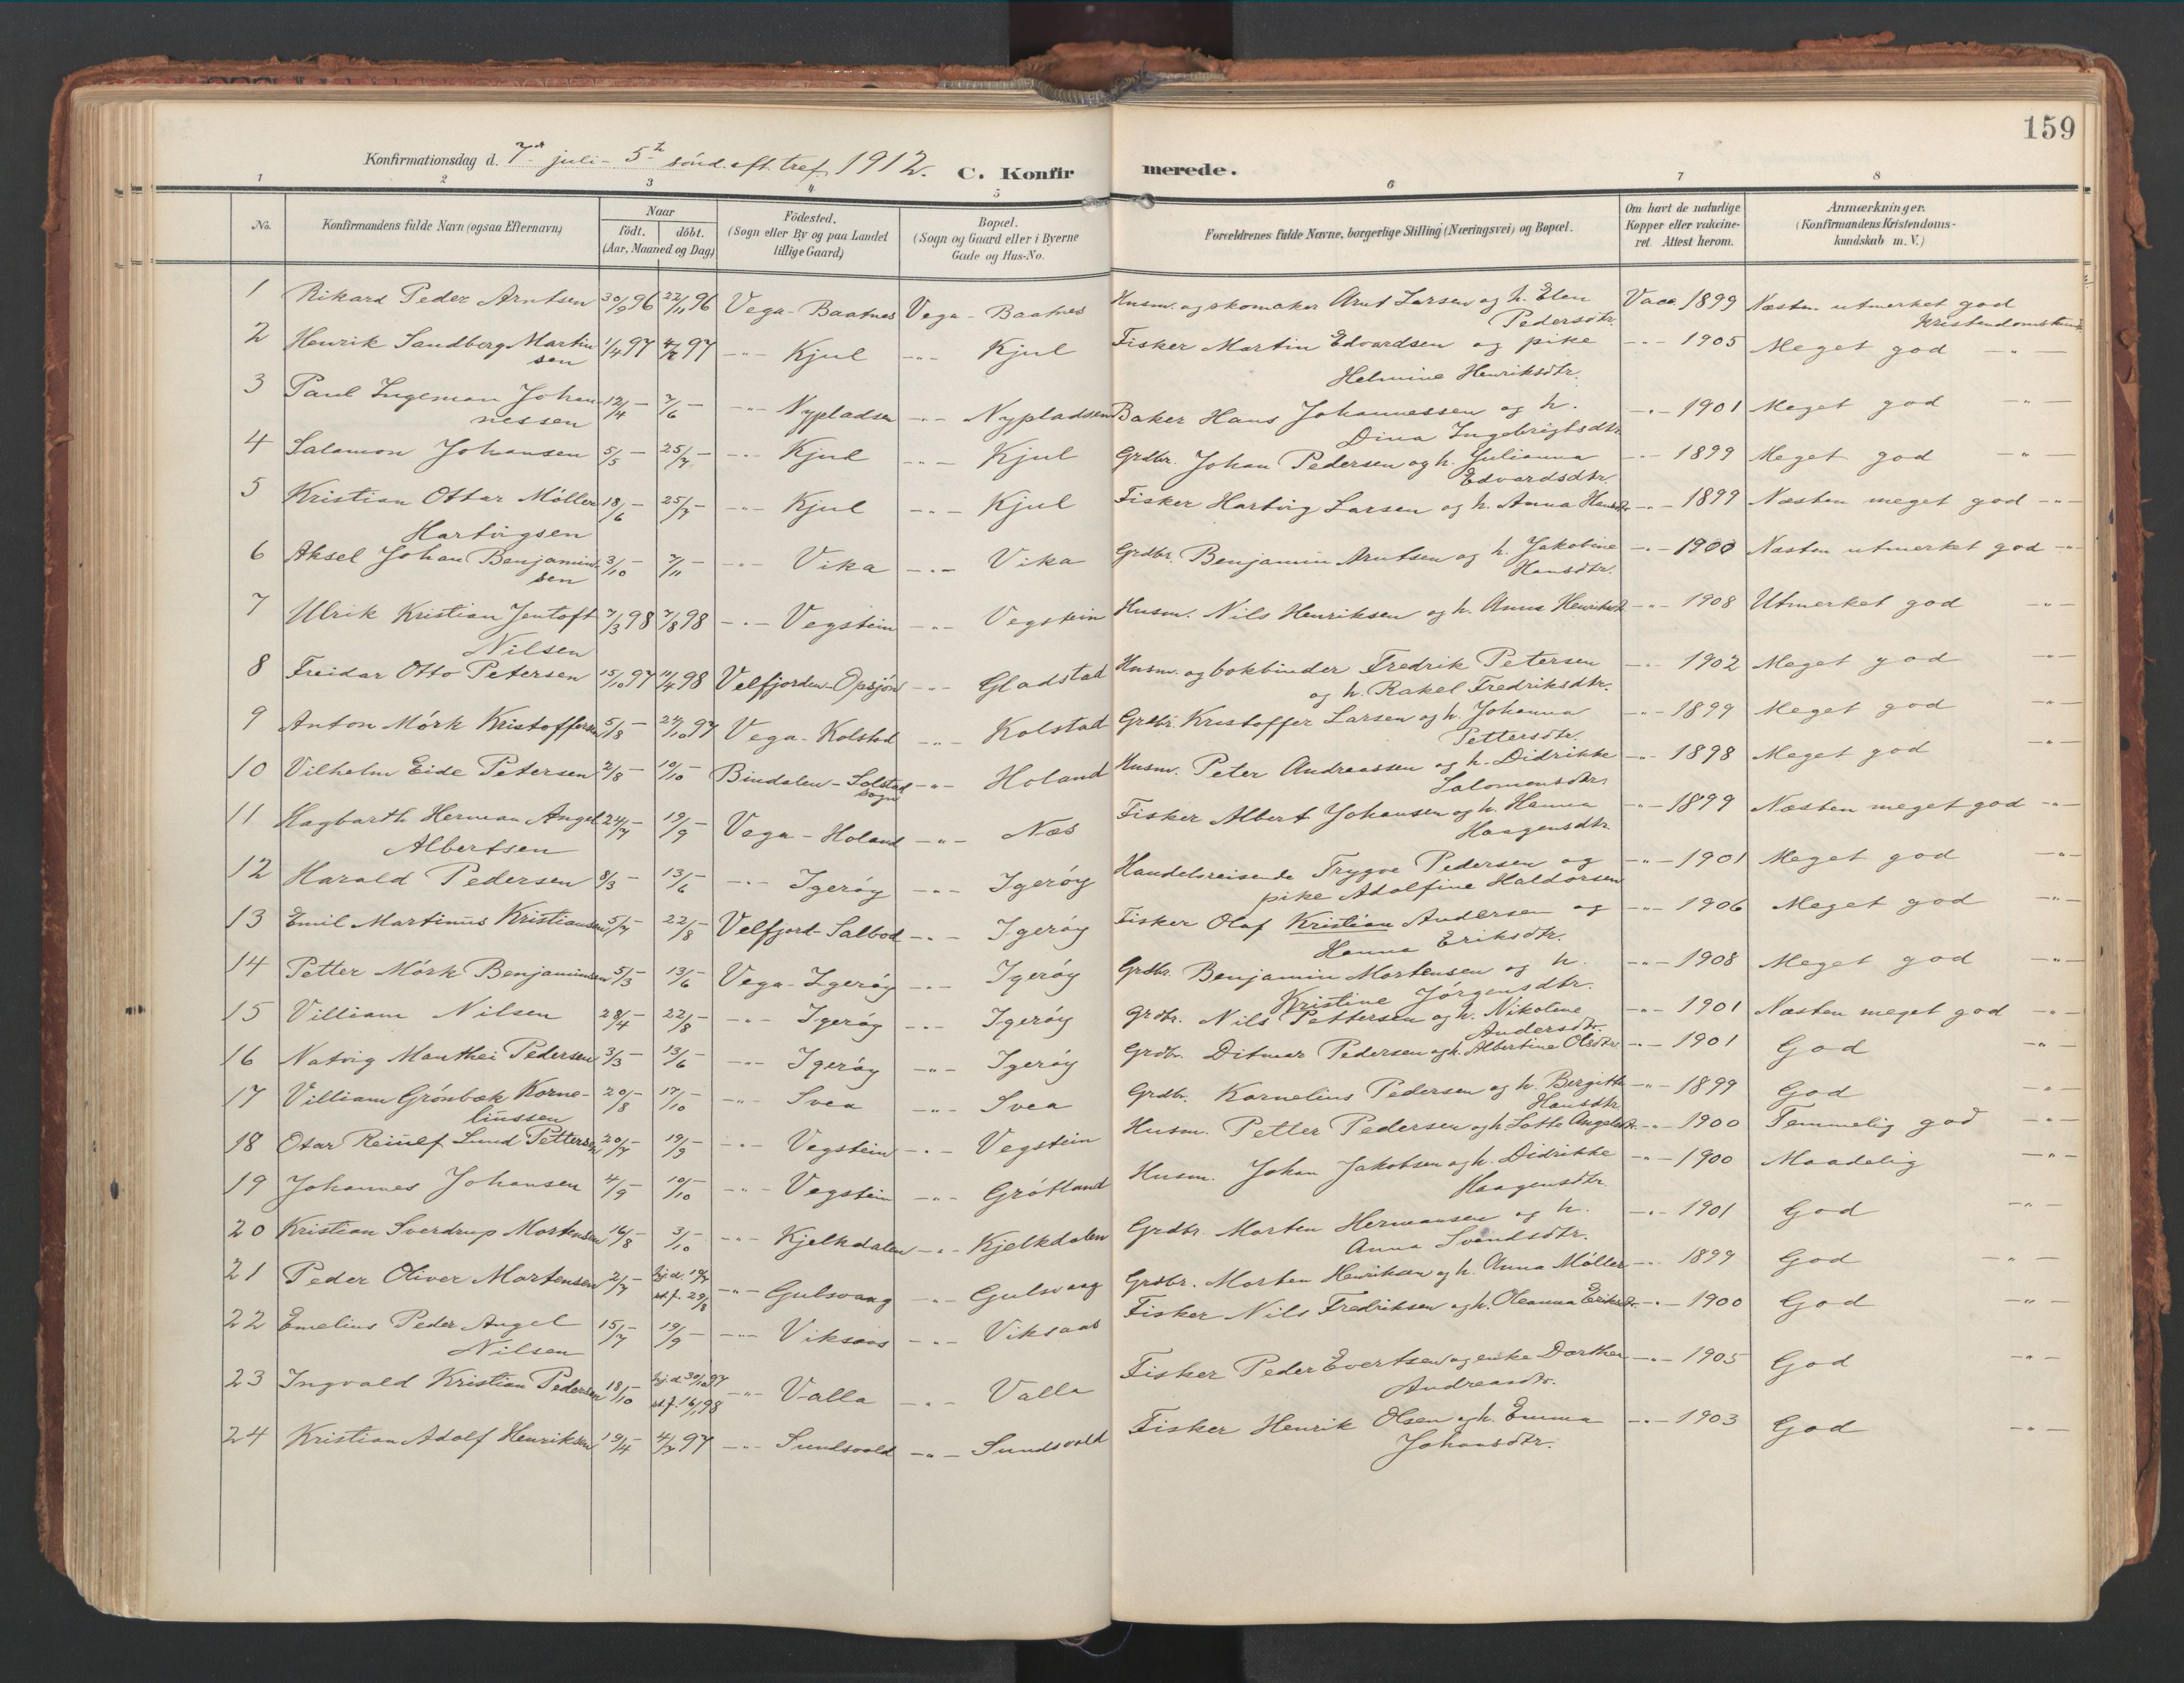 159
Konfirmationsdag d. 7de juli - 5te sönd. eft. tref. 1912. C. Konfirmerede.
1 2 3 4 5 6 7 8
No. Konfirmandens fulde Navn (ogsaa Efternavn) Naar födt. döbt. (Aar, Maaned og Dag) Födested. (Sogn eller By og paa Landet tillige Gaard) Bopæl. (Sogn og Gaard eller i Byerne Gade og Hus-No. Forældrenes fulde Navne, borgerlige Stilling (Næringsvei) og Bopæl. Om havt de naturlige Kopper eller vakcineret. Attest herom. Anmærkninger. (Konfirmandens Kristendomskundskab m. V.)
1 Rikard Peder Arntsen 30/9 96 22/11 96 Vega - Baatnes Vega - Baatnes Husm. og skomaker Arnt Larsen og h. Elen Pedersdtr. Vacc. 1899 Næsten utmerket god Kristendomskundsk
2 Henrik Sandberg Martinsen 1/4 97 4/7 97 -"- Kjul -"- Kjul Fisker Martin Edvardsen og pike Helmine Henriksdtr. -"- 1905 Meget god -"-
3 Paul Ingeman Johannessen 12/4 - 7/6 - -"- Nypladsen -"- Nypladsen Baker Hans Johannessen og h. Dina Ingebrigtsdtr -"- 1901 Meget god -"-
4 Salamon Johansen 5/5 - 25/7 - -"- Kjul -"- Kjul Grdbr. Johan Pedersen og h. Julianna Edvardsdtr. -"- 1899 Meget god -"-
5 Kristian Ottar Möller Hartvigsen 18/6 - 25/7 - -"- Kjul -"- Kjul Fisker Hartvig Larsen og h. Anna Hansdtr -"- 1899 Næsten meget god -"-
6 Aksel Johan Benjaminsen 3/10 - 7/11 - -"- Vika -"- Vika Grdbr. Benjamin Arntsen og h. Jakobine Hansdtr. -"- 1900 Næsten utmerket god -"-
7 Ulrik Kristian Jentoft Nilsen 7/3 98 7/8 98 -"- Vegstein -"- Vegstein Husm. Nils Henriksen og h. Anna Henriksdtr -"- 1908 Utmerket god -"-
8 Freidar Otto Petersen 15/10 97 11/4 98 Velfjorden - Opsjön -"- Gladstad Husm. og bokbinder Fredrik Petersen og h. Rakel Fredriksdtr. -"- 1902 Meget god -"-
9 Anton Mörk Kristoffersen 5/8 - 24/10 97 Vega - Kolstad -"- Kolstad Grdbr. Kristoffer Larsen og h. Johanna Pettersdtr. -"- 1899 Meget god -"-
10 Vilhelm Eide Petersen 2/8 - 10/10 - Bindalen - Solstad sogn -"- Holand Husm. Peter Andreassen og h. Didrikke Salomonsdtr. -"- 1898 Meget god -"-
11 Hagbarth Herman Angel Albertsen 24/7 - 19/9 - Vega - Holand -"- Næs Fisker Albert Johansen og h. Hanna Haagensdtr. -"- 1899 Næsten meget god -"-
12 Harald Pedersen 8/3 - 13/6 - -"- Igeröy -"- Igeröy Handelsreisende Trygve Pedersen og pike Adolfine Haldorsen -"- 1901 Meget god -"-
13 Emil Martinus Kristiansen 5/7 - 22/8 - Velfjord - Salbod -"- Igeröy Fisker Olaf Kristian Andersen og Hanna Eriksdtr. -"- 1906 Meget god -"-
14 Petter Mörk Benjaminsen 5/3 - 13/6 - Vega - Igeröy -"- Igeröy Grdbr. Benjamin Mortensen og h. Kristine Jörgensdtr. -"- 1908 Meget god -"-
15 Villiam Nilsen 28/4 - 22/8 - -"- Igeröy -"- Igeröy Grdbr. Nils Pettersen og h. Nikoline Andersdtr. -"- 1901 Næsten meget god -"-
16 Natvig Manthei Pedersen 3/3 - 13/6 - -"- Igeröy -"- Igeröy Grdbr. Ditmar Pedersen og h. Albertine Olsdtr -"- 1901 God -"-
17 Villiam Grönbæk Korneliussen 20/8 - 17/10 - -"- Svea -"- Svea Grdbr. Kornelius Pedersen og h. Bergitte Hansdtr -"- 1899 God -"-
18 Otar Reinulf Lund Pettersen 20/7 - 19/9 - -"- Vegstein -"- Vegstein Husm. Petter Pedersen og h. Lotte Angelsdtr. -"- 1900 Temmelig god -"-
19 Johannes Johansen 4/9 - 10/10 - -"- Vegstein -"- Grötland Husm. Johan Jakobsen og h. Didrikke Haagensdtr. -"- 1900 Maadelig -"-
20 Kristian Sverdrup Mortensen 16/8 - 3/10 - -"- Kjelkdalen -"- Kjelkdalen Grdbr. Morten Hermansen og h. Anna Svendsdtr. -"- 1901 God -"-
21 Peder Oliver Mortensen 2/7 - hj.d. 19/7 st.f. 29/8 -"- Gulsvaag -"- Gulsvaag Grdbr. Morten Henriksen og h. Anna Möller -"- 1899 God -"-
22 Emelius Peder Angel Nilsen 15/7 - 19/9 - -"- Viksaas -"- Viksaas Fisker Nils Fredriksen og h. Oleanna Eriksdtr. -"- 1900 God -"-
23 Ingvald Kristian Pedersen 18/10 - hj.d. 30/10 97 st.f. 16/1 98 -"- Valla -"- Valla Fisker Peder Evertsen og enke Dorthea Andreasdtr. -"- 1905 God -"-
24 Kristian Adolf Henriksen 19/4 - 4/7 97 -"- Sundsvold -"- Sundsvold Fisker Henrik Olsen og h. Emma Johansdtr. -"- 1903 God -"-